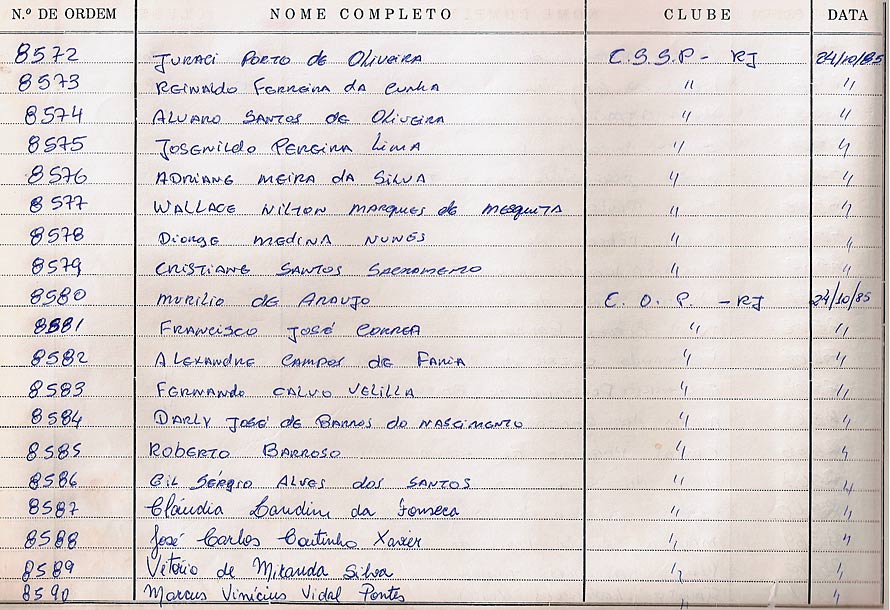 N.º DE ORDEM NOME COMPLETO CLUBE DATA
8572 JURACI PORTO DE OLIVEIRA C.S.S.P - RJ 24/10/85
8573 REINALDO FERREIRA DA CUNHA " "
8574 ALVARO SANTOS DE OLIVEIRA " "
8575 JOSENILDO PEREIRA LIMA " "
8576 ADRIANE MEIRA DA SILVA " "
8577 WALLACE NILTON MARQUES DE MESQUITA " "
8578 DIORGE MEDINA NUNES " "
8579 CRISTIANE SANTOS SACRAMENTO " "
8580 MURILIO DE ARAUJO C. O. P. - RJ 24/10/85
8581 FRANCISCO JOSÉ CORREA " "
8582 ALEXANDRE CAMPOS DE FARIA " "
8583 FERNANDO CALVO VELILLA " "
8584 DARLY JOSÉ DE BARROS DO NASCIMENTO " "
8585 ROBERTO BARROSO " "
8586 GIL SÉRGIO ALVES DOS SANTOS " "
8587 Cláudia Landim da Fonseca " "
8588 José Carlos Coutinho Xavier " "
8589 Vitório de Miranda Silva " "
8590 Marcus Vinícius Vidal Pontes " "